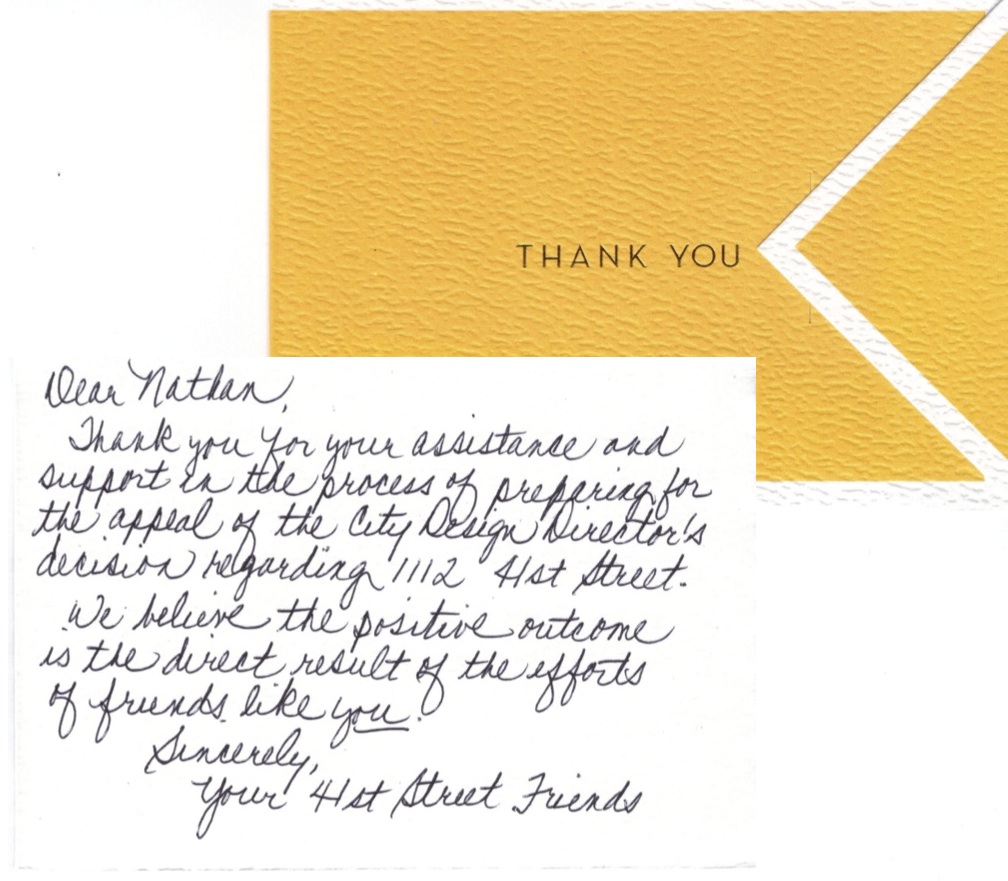 THANK YOU
Dear Nathan,
Thank you for your assistance and
support in the process of preparing for
the appeal of the City Design Director's
decision regarding 1112 41st Street.
We believe the positive outcome
is the direct result of the efforts
of friends like you.
Sincerely,
Your 41st Street Friends